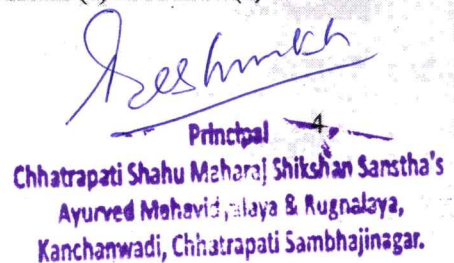 Deshmukh
Principal 4
Chhatrapati Shahu Maharaj Shikshan Sanstha's
Ayurved Mahavidyalaya & Rugnalaya,
Kanchanwadi, Chhatrapati Sambhajinagar.